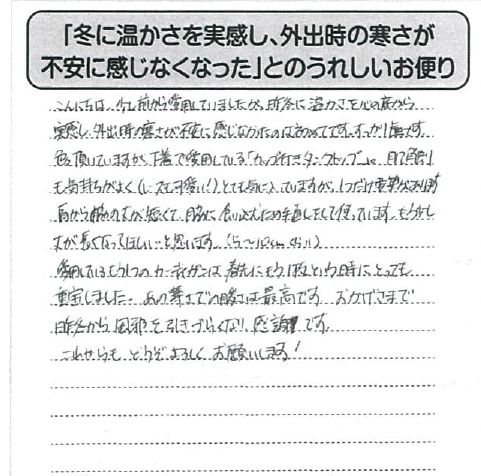 「冬に温かさを実感し、外出時の寒さが
不安に感じなくなった」とのうれしいお便り
こんにちは。少し前から愛用していましたが、昨冬に温かさを心の底から
実感し、外出時の寒さが不安に感じなかったのは初めてです。すっかり
色々頂いていますが、下着で愛用している「カップ付きタンクトップ」は、
も気持ちがよく(レースも可愛い!)とても気に入っていますが、1つだけ要望があります
肩から脇の丈が短くて、脇に食い込むため手直しをして使っています。もう少し
丈が長くなってほしいと思います。(5~10cmくらい)
愛用しているもう1つのカーディガンは、春先にもう1枚という時にとっても
重宝しました。あの薄さでの暖さは最高です。おかげさまで
昨冬から風邪を引きづらくなり、感謝です。
これからもどうぞよろしくお願いします!